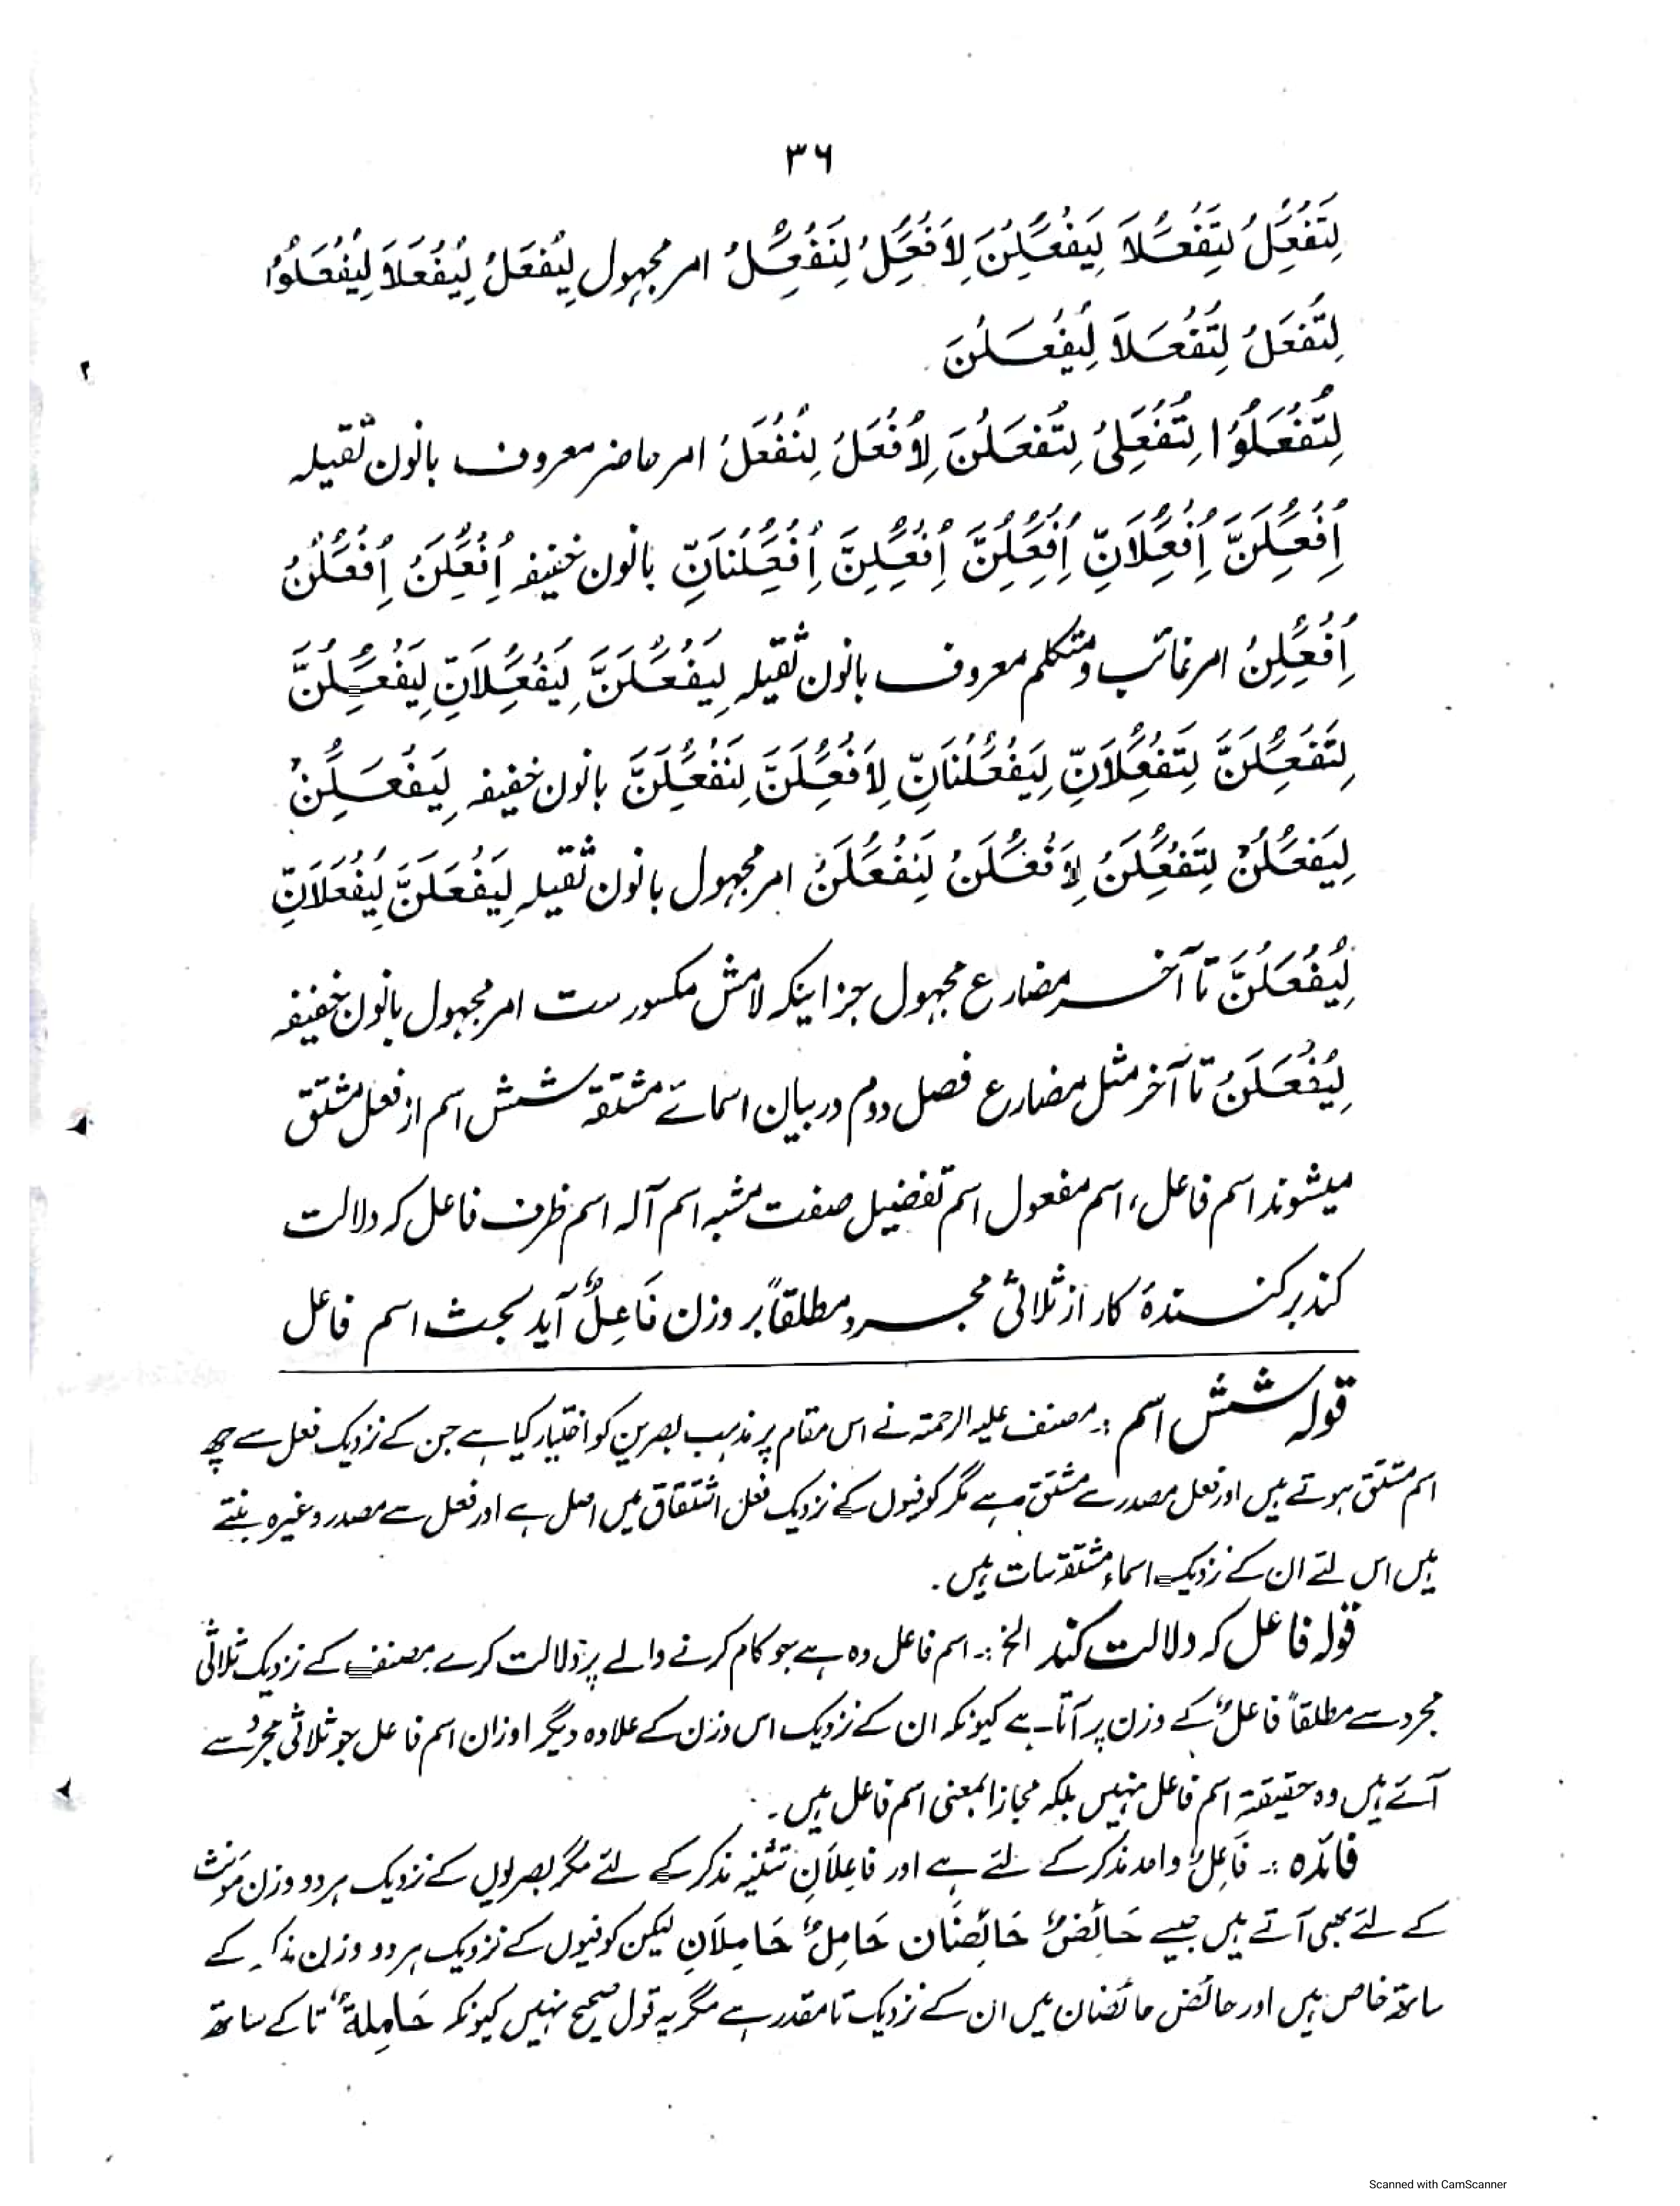 ۳۶
لِتَفْعَُِلْ لِتَفْعَُِلَا لِيَفْعَُِلْنَ لِاَفْعَُِلْ لِنَفْعَُِلْ امر مجہول لِيُفْعَلْ لِيُفْعَلَا لِيُفْعَلُوْا
لِتُفْعَلْ لِتُفْعَلَا لِيُفْعَلْنَ
لِتُفْعَلُوْا لِتُفْعَلِیْ لِتُفْعَلْنَ لِاُفْعَلْ لِنُفْعَلْ امر حاضر معروف بانون ثقیلہ
اُِفْعَُِلَنَّ اُِفْعَُِلَانِّ اُِفْعَُِلُنَّ اُِفْعَُِلِنَّ اُِفْعَُِلْنَانِّ بانون خفیفہ اُِفْعَُِلَنْ اُِفْعَُِلُنْ
اُِفْعَُِلِنْ امر غائب و متکلم معروف بانون ثقیلہ لِيَفْعَُِلَنَّ لِيَفْعَُِلَانِّ لِيَفْعَُِلُنَّ
لِتَفْعَُِلَنَّ لِتَفْعَُِلَانِّ لِيَفْعَُِلْنَانِّ لِاَفْعَُِلَنَّ لِنَفْعَُِلَنَّ بانون خفیفہ لِيَفْعَُِلَنْ
لِيَفْعَُِلُنْ لِتَفْعَُِلَنْ لِاَفْعَُِلَنْ لِنَفْعَُِلَنْ امر مجہول بانون ثقیلہ لِيُفْعَلَنَّ لِيُفْعَلَانِّ
لِيُفْعَلُنَّ تا آخر مضارع مجہول جز اینکہ لامش مکسور ست امر مجہول بانون خفیفہ
لِيُفْعَلَنْ تا آخر مثل مضارع فصل دوم در بیان اسمائے مشتقہ شش اسم از فعل مشتق
میشوند اسم فاعل، اسم مفعول اسم تفضیل صفت مشبہ اسم آلہ اسم ظرف فاعل کہ دلالت
کند بر کنندۂ کار از ثلاثی مجرد مطلقاً بر وزن فَاعِلٌ آید بحث اسم فاعل
قولہ شش اسم :۔ مصنف علیہ الرحمۃ نے اس مقام پر مذہب بصرین کو اختیار کیا ہے جن کے نزدیک فعل سے چھ
اسم مشتق ہوتے ہیں اور فعل مصدر سے مشتق ہے مگر کوفیوں کے نزدیک فعل اشتقاق میں اصل ہے اور فعل سے مصدر وغیرہ بنتے
ہیں اس لئے ان کے نزدیک اسماء مشتقہ سات ہیں۔
قولہ فاعل کہ دلالت کند الخ :۔ اسم فاعل وہ ہے جو کام کرنے والے پر دلالت کرے مصنف کے نزدیک ثلاثی
مجرد سے مطلقاً فاعلٌ کے وزن پر آتا ہے کیونکہ ان کے نزدیک اس وزن کے علاوہ دیگر اوزان اسم فاعل جو ثلاثی مجرد سے
آتے ہیں وہ حقیقۃ اسم فاعل نہیں بلکہ مجازاً بمعنی اسم فاعل ہیں۔
فائدہ :۔ فَاعِلٌ واحد مذکر کے لئے ہے اور فاعِلَانِ تثنیہ مذکر کے لئے مگر بصریوں کے نزدیک ہر دو وزن مؤنث
کے لئے بھی آتے ہیں جیسے حَائِضٌ حَائِضَانِ حَامِلٌ حَامِلَانِ لیکن کوفیوں کے نزدیک ہر دو وزن مذکر کے
ساتھ خاص ہیں اور حائض حائضان میں ان کے نزدیک تا مقدر ہے مگر یہ قول صحیح نہیں کیونکہ حَامِلَةٌ تا کے ساتھ
Scanned with CamScanner